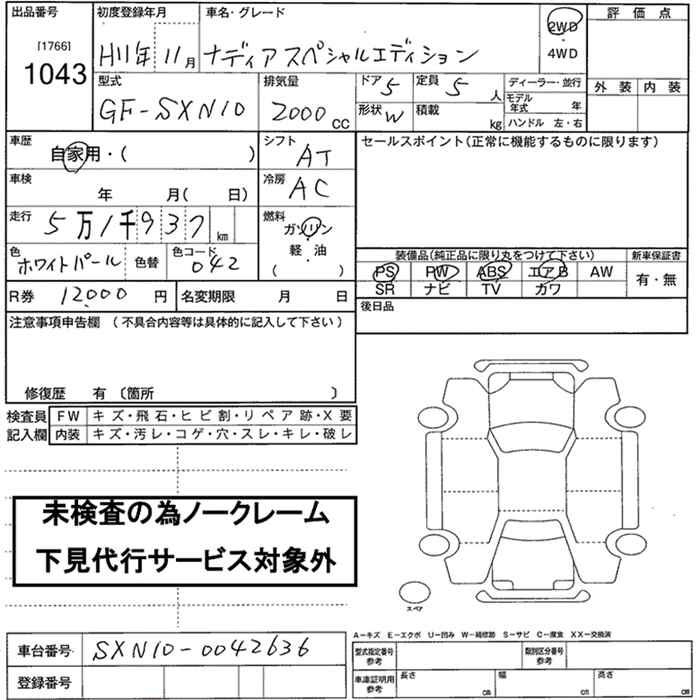 出品番号
[1766]
1043
初度登録年月
H11年 11月
車名・グレード
ナディアスペシャルエディション
2WD
・
4WD
評価点
外装 内装
型式
GF-SXN10
排気量
2000 CC
ドア 5
定員 5 人
形状 W
積載 kg
ディーラー・並行
モデル年式 年
ハンドル 左・右
車歴
自家用・( )
シフト
AT
車検
年 月( 日)
冷房
AC
走行
5万1千937 km
燃料
ガソリン
軽・油
( )
色
ホワイトパール
色替
色コード
042
R券 12,000 円
名変期限 月 日
セールスポイント(正常に機能するものに限ります)
装備品(純正品に限り丸をつけて下さい)
新車保証書
PS PW ABS エアB AW
SR ナビ TV カワ
有・無
後日品
注意事項申告欄 (不具合内容等は具体的に記入して下さい)
修復歴 有 〔箇所 〕
検査員 FW キズ・飛石・ヒビ割・リペア跡・X要
記入欄 内装 キズ・汚レ・コゲ・穴・スレ・キレ・破レ
未検査の為ノークレーム
下見代行サービス対象外
スペア
A−キズ E−エクボ U−凹み W−補修跡 S−サビ C−腐食 XX−交換済
車台番号 SXN10-0042636
登録番号
型式指定番号
参考
類別区分番号
参考
車庫証明用
参考
長さ cm
幅 cm
高さ cm